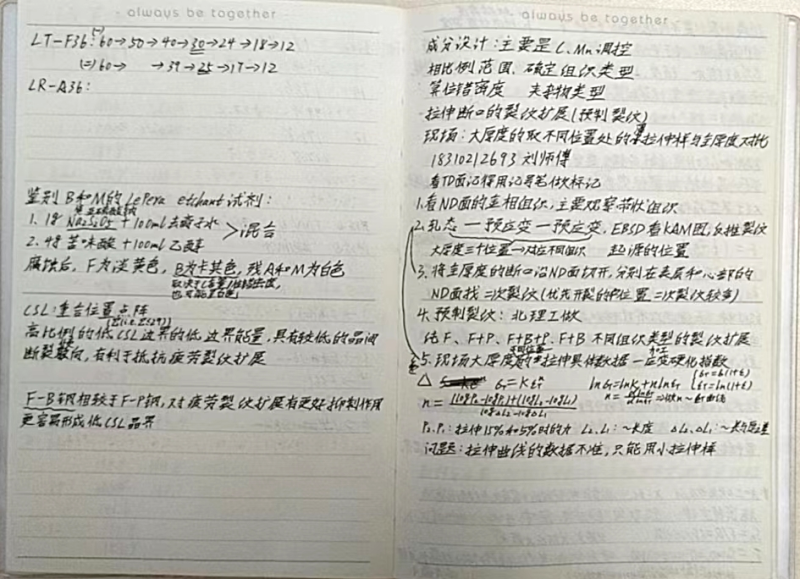 always be together
LT-F36: (一) 60→50→40→30→24→18→12
(二) 60→ →39→25→17→12
LR-A36:
鉴别 B和M的 LePera etchant 试剂:
1. 1g Na2S2O5 + 100ml 去离子水
>混合
2. 4g 苦味酸 + 100ml 乙醇
腐蚀后, F为淡黄色, B为卡其色, 残A和M为白色
也可能是黑色
CSL: 重合位置点阵
高比例的低CSL边界的低边界能量, 具有较低的晶间
断裂倾向, 有利于抵抗疲劳裂纹扩展
F-B钢相较于F-P钢, 对疲劳裂纹扩展有更好抑制作用
更容易形成低CSL晶界
always be together
成分设计: 主要是C、Mn调控
相比例范围、确定组织类型
算位错密度 夹杂物类型
拉伸断口的裂纹扩展(预制裂纹)
现场: 大厚度的取不同位置处的拉伸样与全厚度对比
18310212693 刘师傅
看TD面记得用记号笔做标记
1. 看ND面的金相组织, 主要观察带状组织
2. 轧态 — 预应变 — 预应变, EBSD看KAM图, 反推裂纹
大厚度三个位置→对应不同组织 起源的位置
3. 将全厚度的断口沿ND面切开, 分别在表层和心部的
ND面找二次裂纹(优先开裂的P位置二次裂纹较多)
4. 预制裂纹: 北理工做
纯F、F+P、F+B+P、F+B 不同组织类型的裂纹扩展
5. 现场大厚度的拉伸具体数据 — 应变硬化指数
△ σT=KεTⁿ lnσT=lnK+nlnεT
n=
P2、P1: 拉伸15%和5%时的力 L2、L1: ~长度 ΔL2、ΔL1: ~长度差
问题: 拉伸曲线的数据不准, 只能用小拉伸样